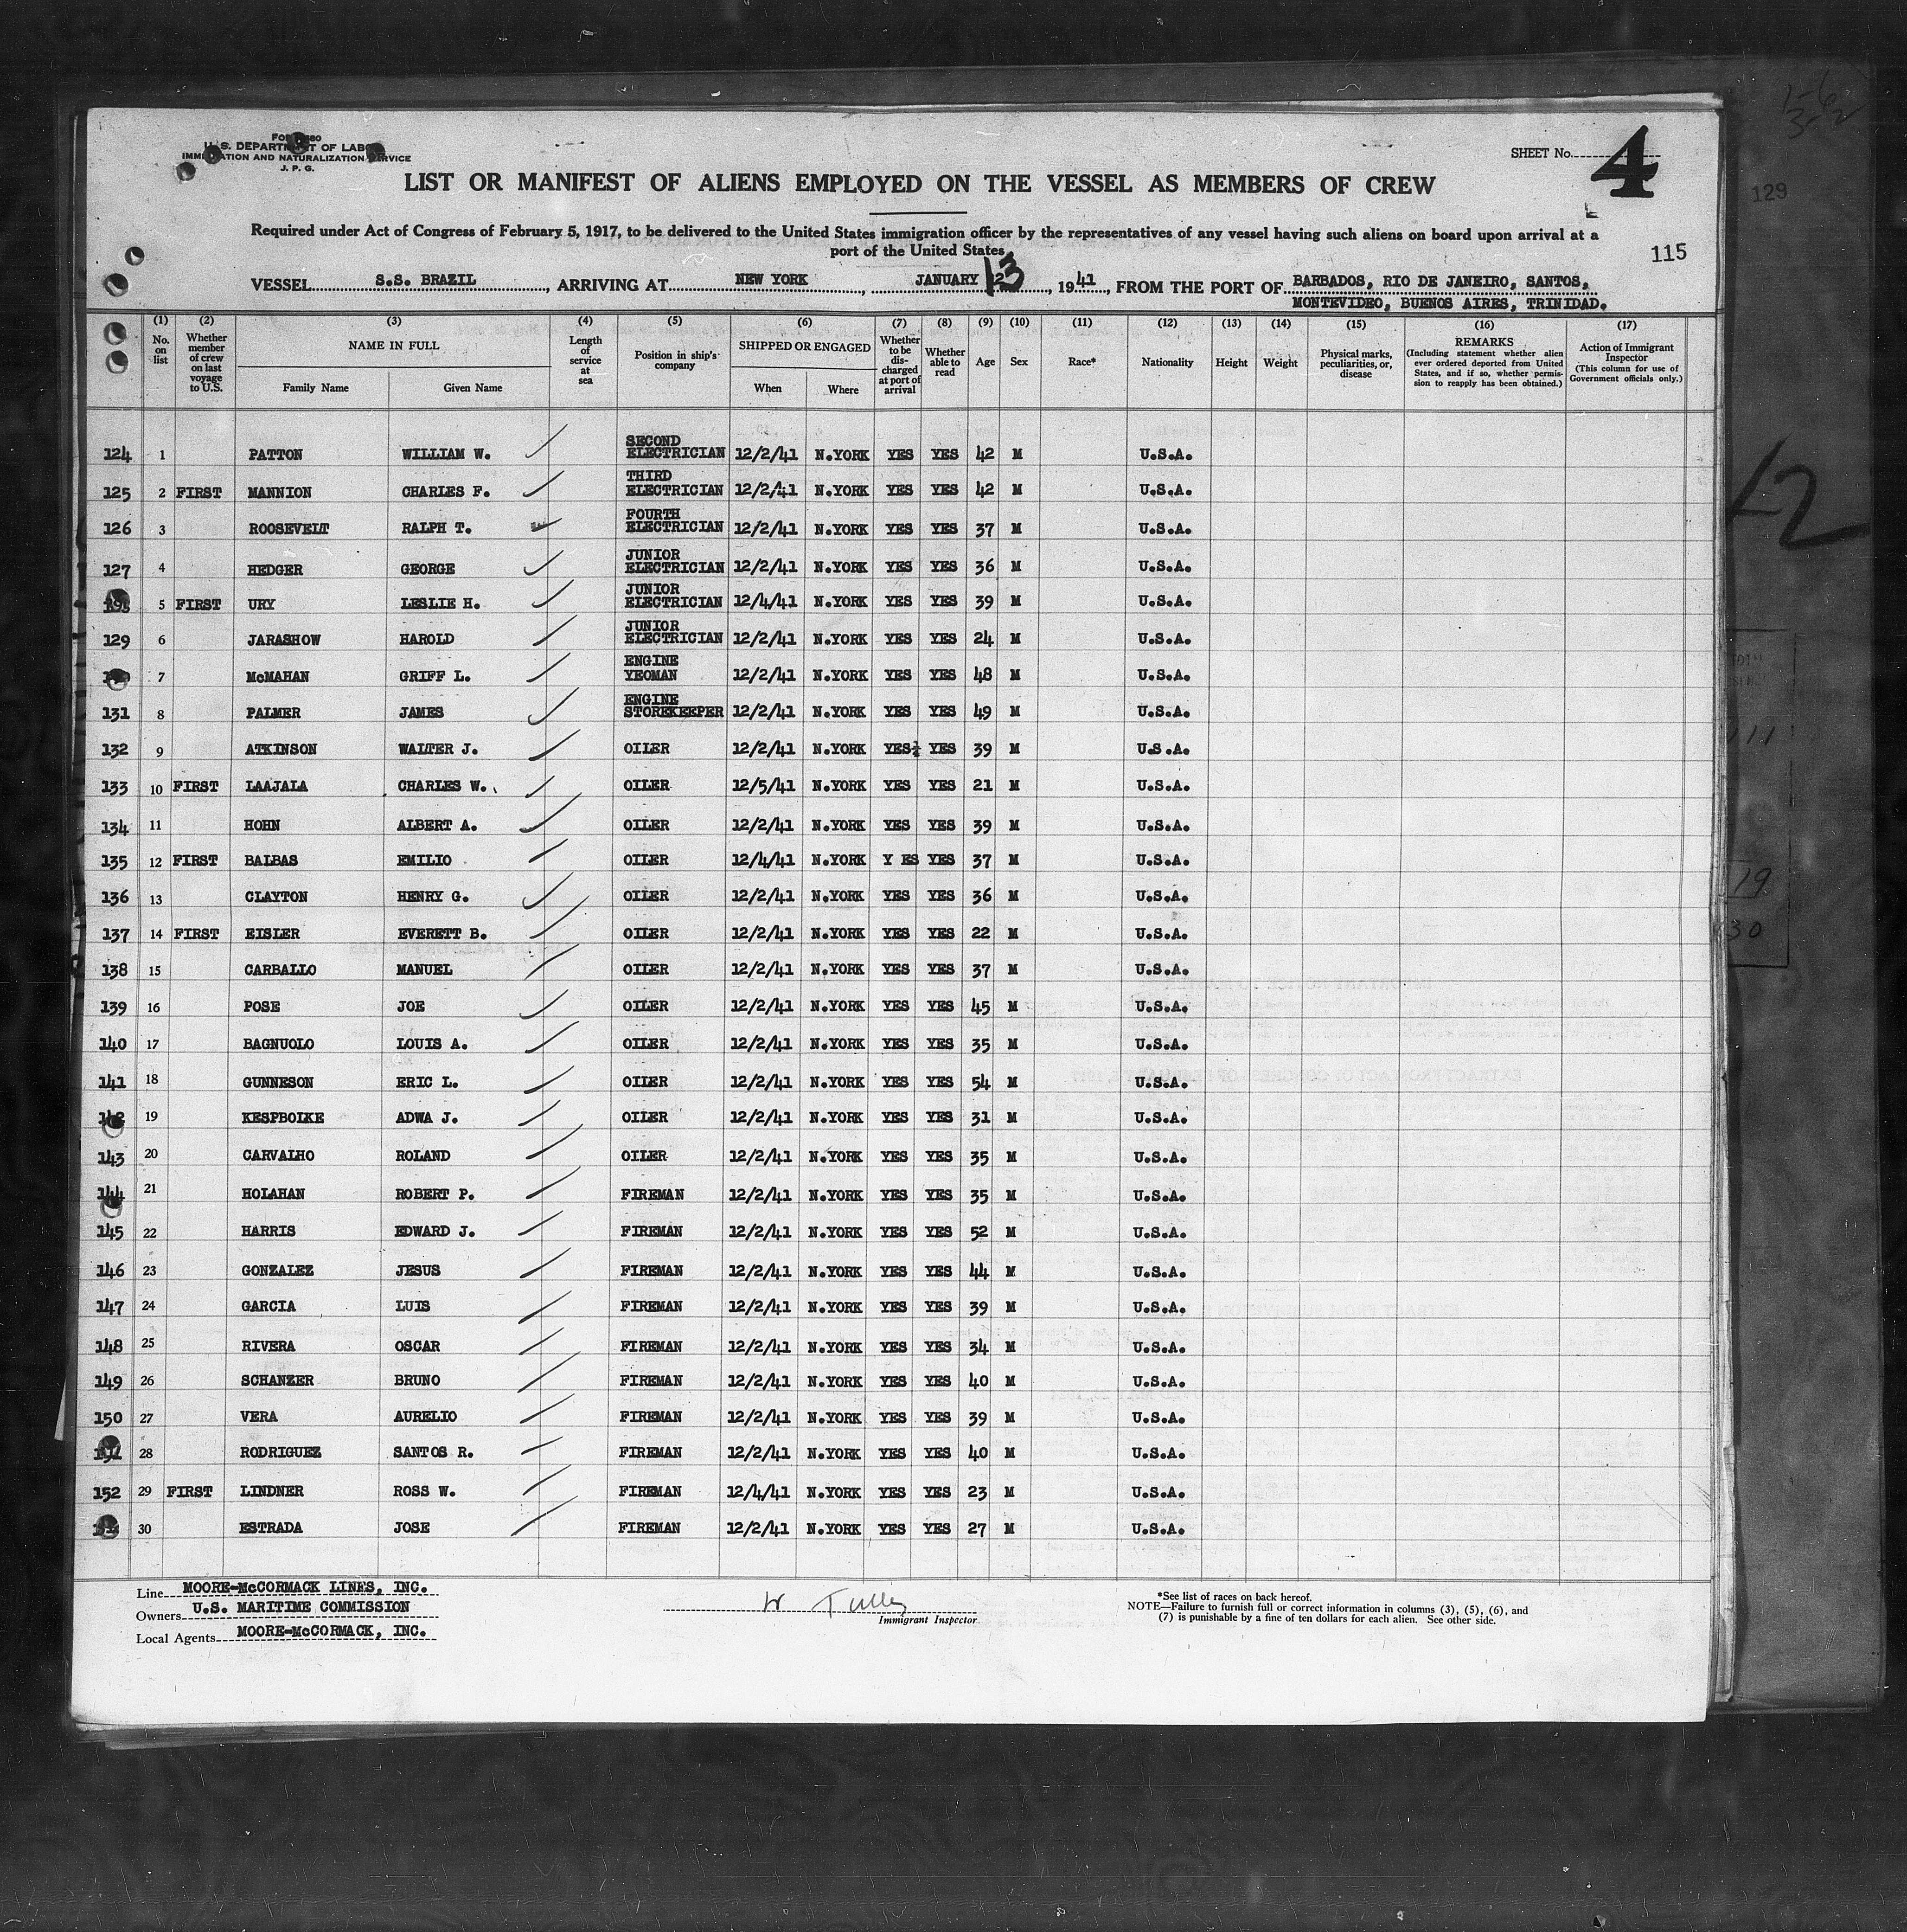 SHEET No. 4
U. S. DEPARTMENT OF LABOR
IMMIGRATION AND NATURALIZATION SERVICE
J. P. G.
LIST OR MANIFEST OF ALIENS EMPLOYED ON THE VESSEL AS MEMBERS OF CREW
129
Required under Act of Congress of February 5, 1917, to be delivered to the United States immigration officer by the representatives of any vessel having such aliens on board upon arrival at a
port of the United States
115
VESSEL S.S. BRAZIL, ARRIVING AT NEW YORK, JANUARY 13, 1941, FROM THE PORT OF BARBADOS, RIO DE JANEIRO, SANTOS,
MONTEVIDEO, BUENOS AIRES, TRINIDAD.
(1) (2) (3) (4) (5) (6) (7) (8) (9) (10) (11) (12) (13) (14) (15) (16) (17)
No. on list
Whether member of crew on last voyage to U.S.
NAME IN FULL
Family Name Given Name
Length of service at sea
Position in ship's company
SHIPPED OR ENGAGED
When Where
Whether to be discharged at port of arrival
Whether able to read
Age
Sex
Race*
Nationality
Height
Weight
Physical marks, peculiarities, or, disease
REMARKS
(Including statement whether alien ever ordered deported from United States, and if so, whether permission to reapply has been obtained.)
Action of Immigrant Inspector
(This column for use of Government officials only.)
124 1 PATTON WILLIAM W. SECOND ELECTRICIAN 12/2/41 N.YORK YES YES 42 M U.S.A.
125 2 FIRST MANNION CHARLES F. THIRD ELECTRICIAN 12/2/41 N.YORK YES YES 42 M U.S.A.
126 3 ROOSEVELT RALPH T. FOURTH ELECTRICIAN 12/2/41 N.YORK YES YES 37 M U.S.A.
127 4 HEDGER GEORGE JUNIOR ELECTRICIAN 12/2/41 N.YORK YES YES 36 M U.S.A.
5 FIRST URY LESLIE H. JUNIOR ELECTRICIAN 12/4/41 N.YORK YES YES 39 M U.S.A.
129 6 JARASHOW HAROLD JUNIOR ELECTRICIAN 12/2/41 N.YORK YES YES 24 M U.S.A.
7 McMAHAN GRIFF L. ENGINE YEOMAN 12/2/41 N.YORK YES YES 48 M U.S.A.
131 8 PALMER JAMES ENGINE STOREKEEPER 12/2/41 N.YORK YES YES 49 M U.S.A.
132 9 ATKINSON WALTER J. OILER 12/2/41 N.YORK YES YES 39 M U.S.A.
133 10 FIRST LAAJALA CHARLES W. OILER 12/5/41 N.YORK YES YES 21 M U.S.A.
134 11 HOHN ALBERT A. OILER 12/2/41 N.YORK YES YES 39 M U.S.A.
135 12 FIRST BALBAS EMILIO OILER 12/4/41 N.YORK Y ES YES 37 M U.S.A.
136 13 CLAYTON HENRY G. OILER 12/2/41 N.YORK YES YES 36 M U.S.A.
137 14 FIRST EISLER EVERETT B. OILER 12/2/41 N.YORK YES YES 22 M U.S.A.
138 15 CARBALLO MANUEL OILER 12/2/41 N.YORK YES YES 37 M U.S.A.
139 16 POSE JOE OILER 12/2/41 N.YORK YES YES 45 M U.S.A.
140 17 BAGNUOLO LOUIS A. OILER 12/2/41 N.YORK YES YES 35 M U.S.A.
141 18 GUNNESON ERIC L. OILER 12/2/41 N.YORK YES YES 54 M U.S.A.
142 19 KESPBOIKE ADWA J. OILER 12/2/41 N.YORK YES YES 31 M U.S.A.
143 20 CARVALHO ROLAND OILER 12/2/41 N.YORK YES YES 35 M U.S.A.
144 21 HOLAHAN ROBERT P. FIREMAN 12/2/41 N.YORK YES YES 35 M U.S.A.
145 22 HARRIS EDWARD J. FIREMAN 12/2/41 N.YORK YES YES 52 M U.S.A.
146 23 GONZALEZ JESUS FIREMAN 12/2/41 N.YORK YES YES 44 M U.S.A.
147 24 GARCIA LUIS FIREMAN 12/2/41 N.YORK YES YES 39 M U.S.A.
148 25 RIVERA OSCAR FIREMAN 12/2/41 N.YORK YES YES 34 M U.S.A.
149 26 SCHANZER BRUNO FIREMAN 12/2/41 N.YORK YES YES 40 M U.S.A.
150 27 VERA AURELIO FIREMAN 12/2/41 N.YORK YES YES 39 M U.S.A.
151 28 RODRIGUEZ SANTOS R. FIREMAN 12/2/41 N.YORK YES YES 40 M U.S.A.
152 29 FIRST LINDNER ROSS W. FIREMAN 12/4/41 N.YORK YES YES 23 M U.S.A.
30 ESTRADA JOSE FIREMAN 12/2/41 N.YORK YES YES 27 M U.S.A.
Line MOORE-McCORMACK LINES, INC.
Owners U.S. MARITIME COMMISSION
Local Agents MOORE-McCORMACK, INC.
Immigrant Inspector
*See list of races on back hereof.
NOTE—Failure to furnish full or correct information in columns (3), (5), (6), and
(7) is punishable by a fine of ten dollars for each alien. See other side.